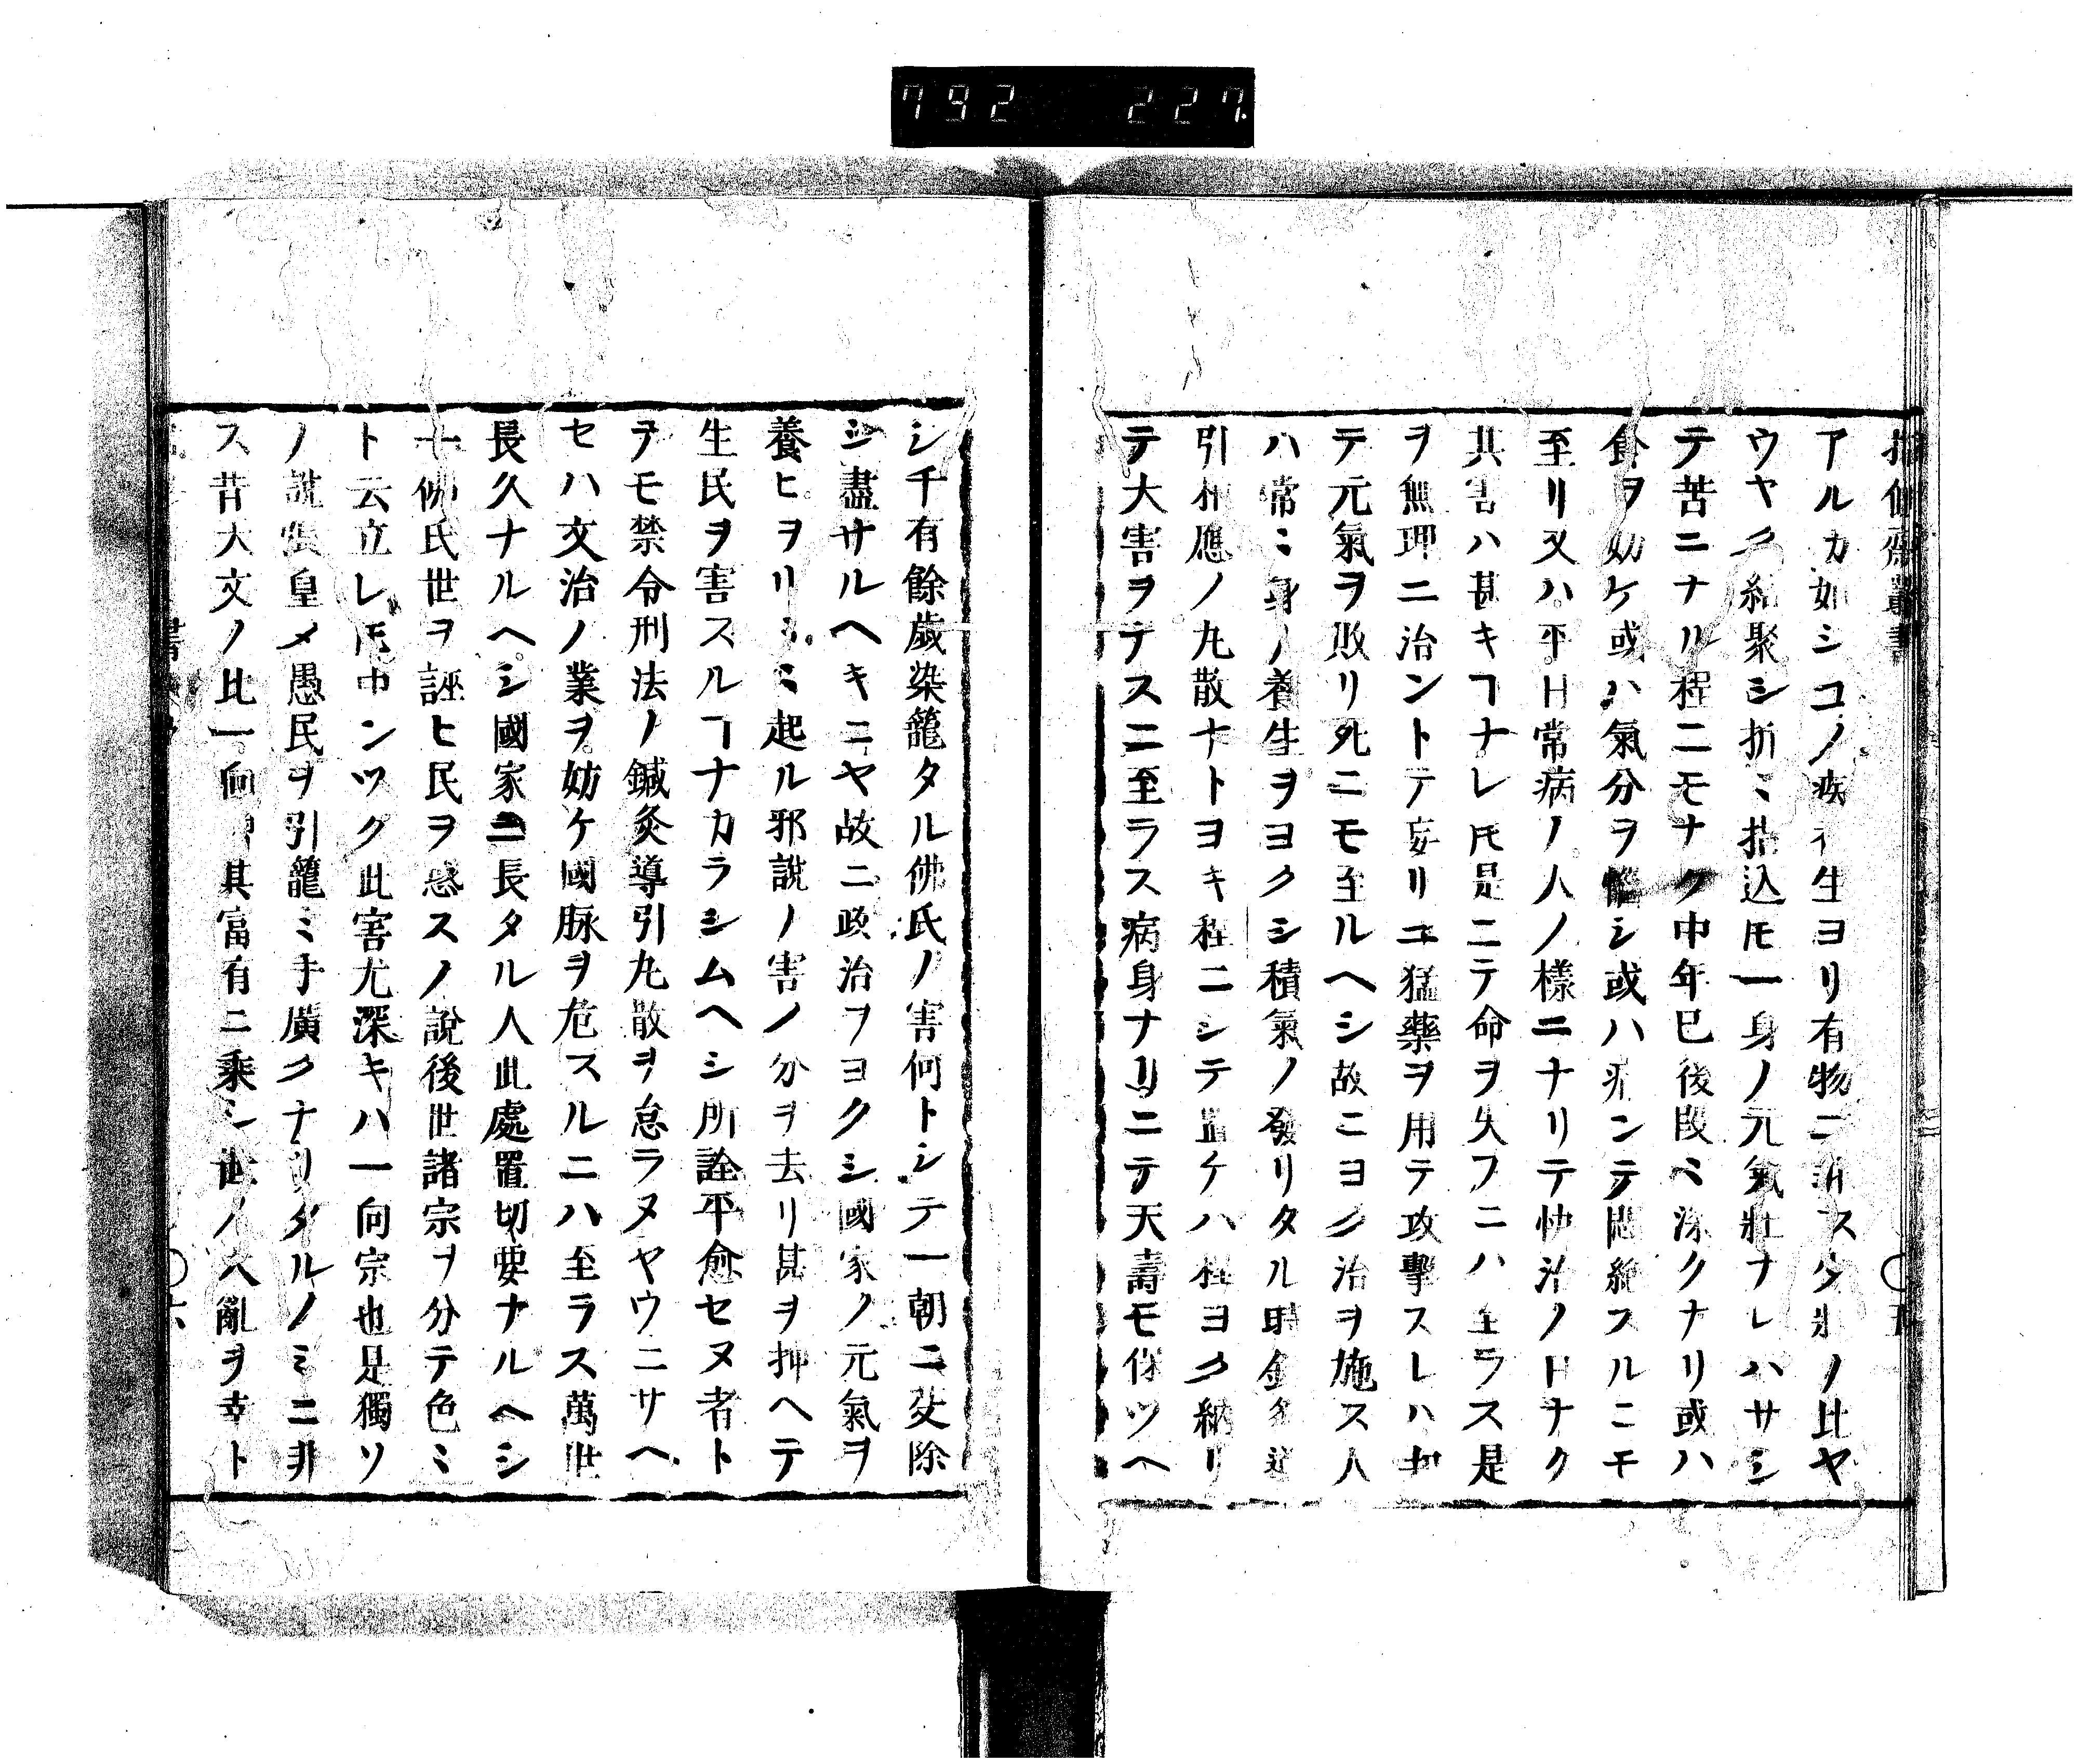 792 227
アルカ如シコノ疾ハ生ヨリ有物ニ非スタ状ノ比ヤ
ウヤク結聚シ折ミ指込モ一身ノ元氣壯ナレハサシ
テ苦ニナル程ニモナク中年已後段ミ深クナリ或ハ
食ヲ妨ケ或ハ氣分ヲ惱シ或ハ悶絶スルニモ
至リ又ハ平日常病ノ人ノ樣ニナリテ快治ノ日ナク
其害ハ甚キヿナレ𪜈是ニテ命ヲ失フニハ至ラス是
ヲ無理ニ治ントテ妄リニ猛藥ヲ用テ攻撃スレハ却
テ元氣ヲ敗リ死ニモ至ルヘシ故ニヨク治ヲ施ス人
ハ常ミ身ノ養生ヲヨクシ積氣ノ發リタル時針灸導
引相應ノ丸散ナトヨキ程ニシテ置ケハ程ヨク納リ
テ大害ヲナスニ至ラス病身ナリニテ天壽モ保ツヘ
シ千有餘歲染籠タル佛氏ノ害何トシテ一朝ニ芟除
シ盡サルヘキニヤ故ニ政治ヲヨクシ國家ノ元氣ヲ
養ヒヲリ起ル邪說ノ害ノ分ヲ去リ甚ヲ押ヘテ
生民ヲ害スルヿナカラシムヘシ所詮平愈セヌ者ト
ヲモ禁令刑法ノ鍼灸導引丸散ヲ怠ラヌヤウニサヘ
セハ文治ノ業ヲ妨ケ國脉ヲ危スルニハ至ラス萬世
長久ナルヘシ國家ニ長タル人此處置切要ナルヘシ
一佛氏世ヲ誣ヒ民ヲ惑スノ說後世諸宗ヲ分テ色ミ
ト云立レ𪜈中ンツク此害尤深キハ一向宗也是獨ソ
ノ說張皇メ愚民ヲ引籠ミ手廣クナリタルノミニ非
ス昔大文ノ比一向其富有ニ乘シ世ノ大亂ヲ幸ト
六